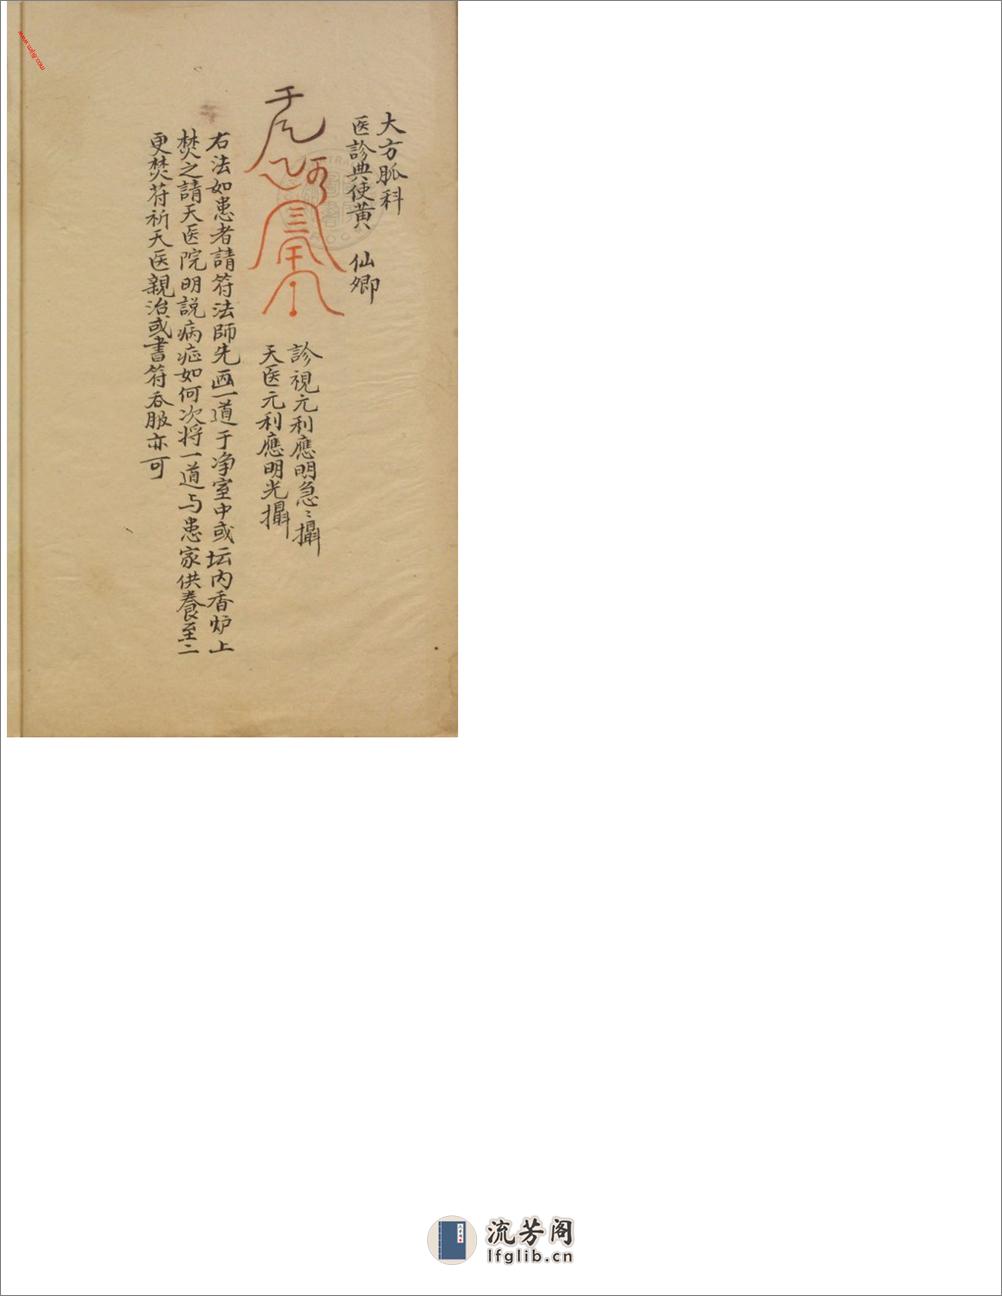 大方脈科
医診典使黄 仙卿
診視亢利應明急々攝
天医元利應明光攝
右法如患者請符法師先画一道于净室中或坛内香炉上
焚之請天医院明説病症如何次将一道与患家供養至二
更焚苻祈天医親治或書符吞服亦可
流芳阁
lfglib.cn